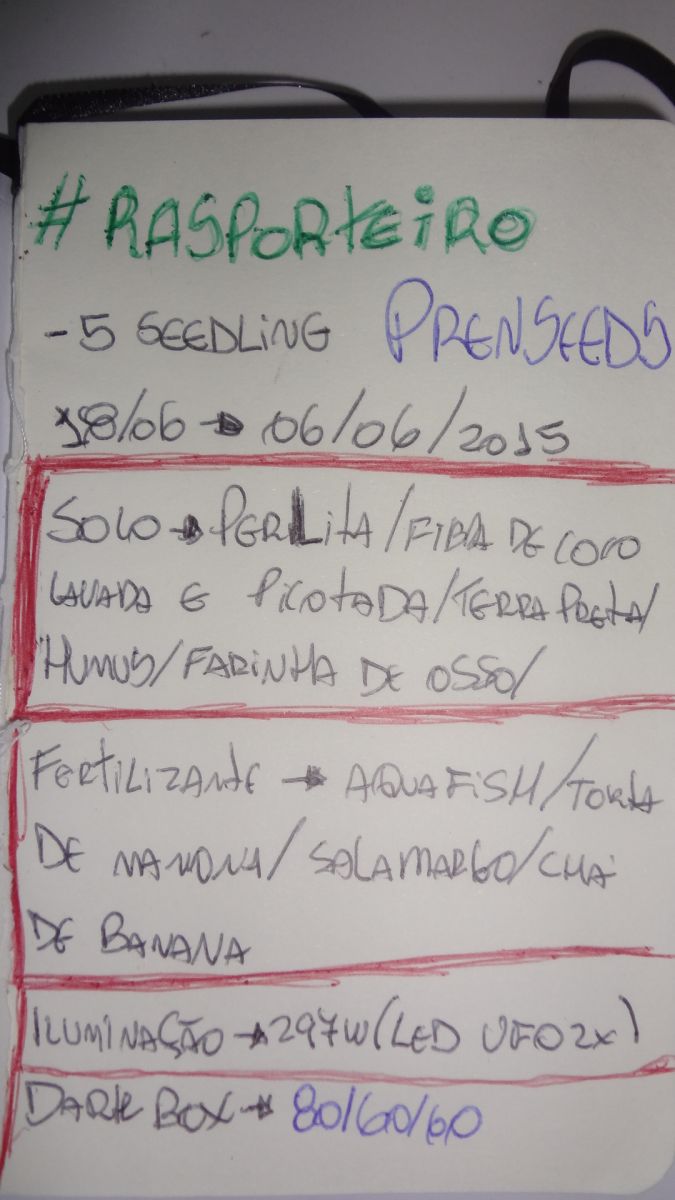 #RASPORTEIRO
- 5 SEEDLING PRENSEEDS
18/06 → 06/06/2015
SOLO → PERLITA/FIBA DE COCO
LAVADA E PICOTADA/TERRA PRETA/
HUMUS/FARINHA DE OSSO/
FERTILIZANTE → AQUAFISH/TORTA
DE MAMONA/SALAMARGO/CHÁ
DE BANANA
ILUMINAÇÃO → 297W (LED UFO 2x)
DARK BOX → 80/60/60